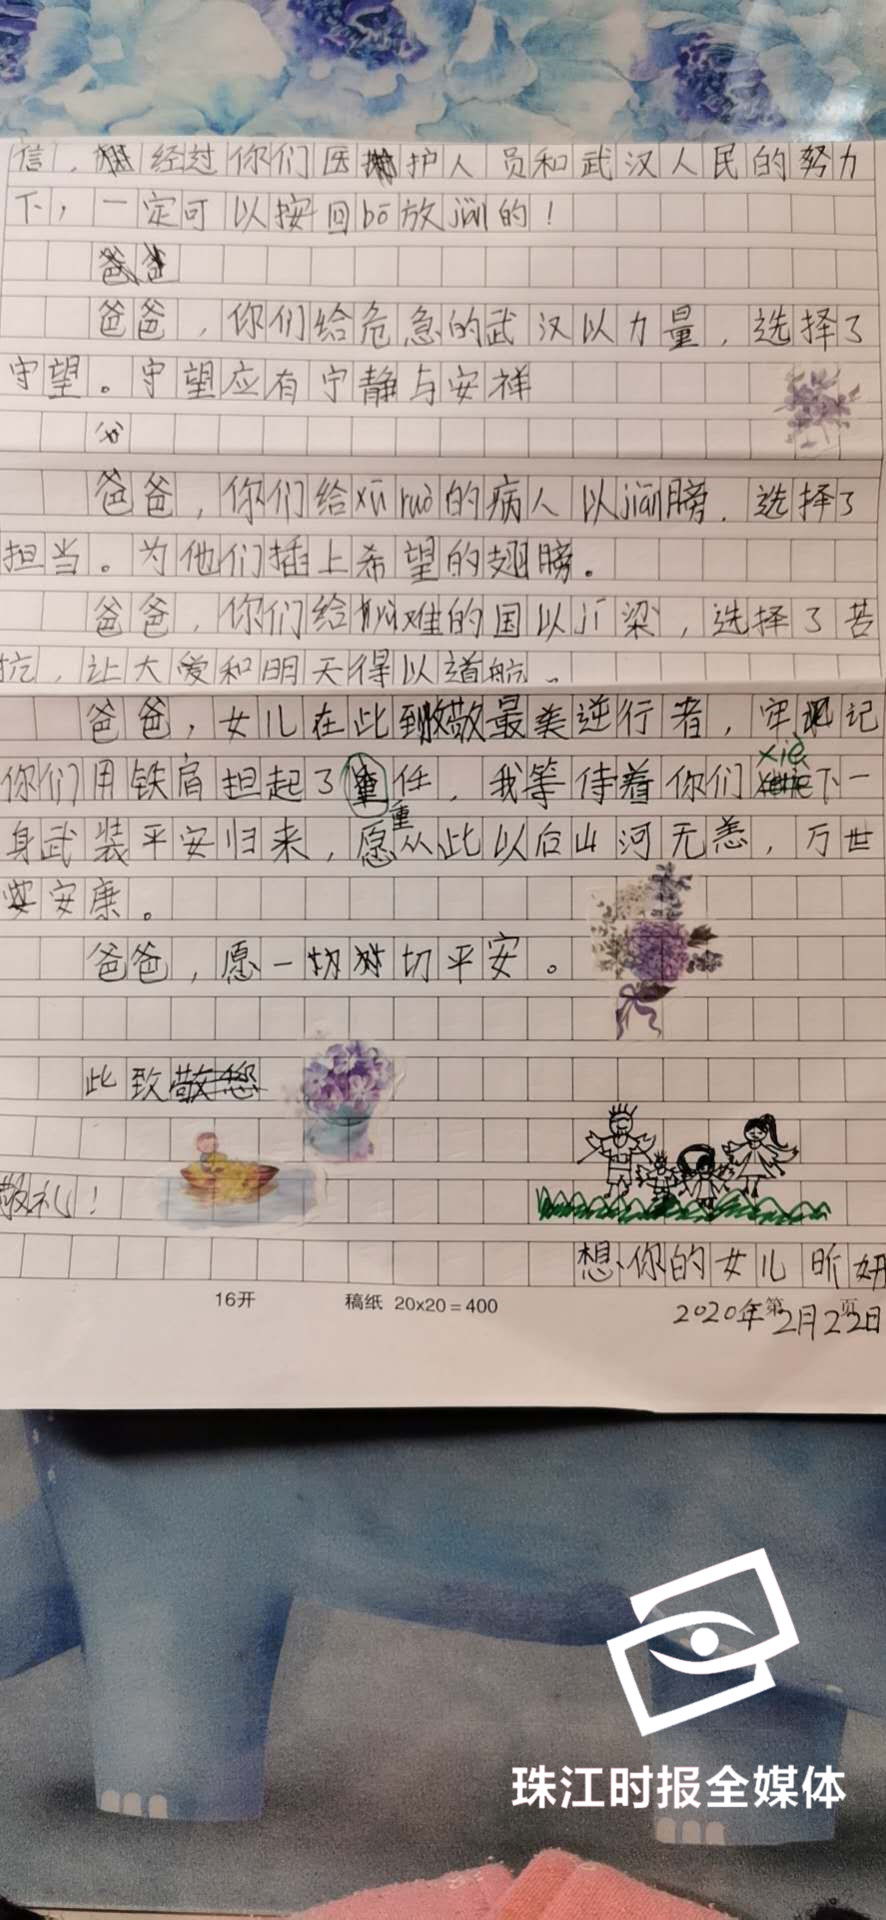 信，经过你们医护人员和武汉人民的努力
下，一定可以按回bō放jiàn的！
爸爸
爸爸，你们给危急的武汉以力量，选择了
守望。守望应有宁静与安祥
爸爸，你们给xū ruò的病人以jiān膀，选择了
担当。为他们插上希望的翅膀。
爸爸，你们给难的国以jǐ梁，选择了苦
抗，让大爱和明天得以道航。
爸爸，女儿在此致敬最美逆行者，牢记
你们用铁肩担起了重任，我等待着你们xiè下一
身武装平安归来，愿从此以后山河无恙，万世
安康。
爸爸，愿一切平安。
此致
敬礼！
想你的女儿昕妍
16开 稿纸 20x20=400
第 页
2020年2月22日
珠江时报全媒体